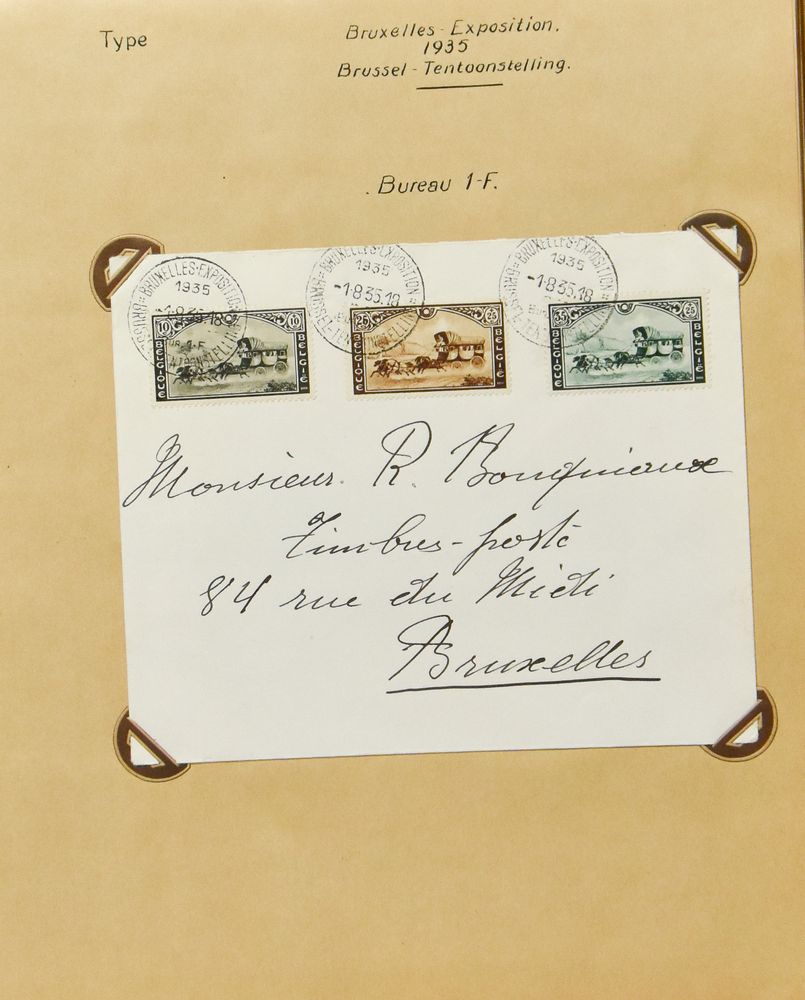 Type
Bruxelles - Exposition.
1935
Brussel - Tentoonstelling.
Bureau 1-F.
BRUSSEL BRUXELLES-EXPOSITION
1935
-1.8.35.18
1-F
BRUXELLES-EXPOSITION
1935
-1.8.35.18
BRUSSEL-TENTOONSTELLING
BRUXELLES-EXPOSITION
1935
-1.8.35.18
10 10
BELGIQUE BELGIË
25 25
BELGIQUE BELGIË
35 35
BELGIQUE BELGIË
Monsieur R. Bouquiaux
Timbres-poste
84 rue du Midi
Bruxelles